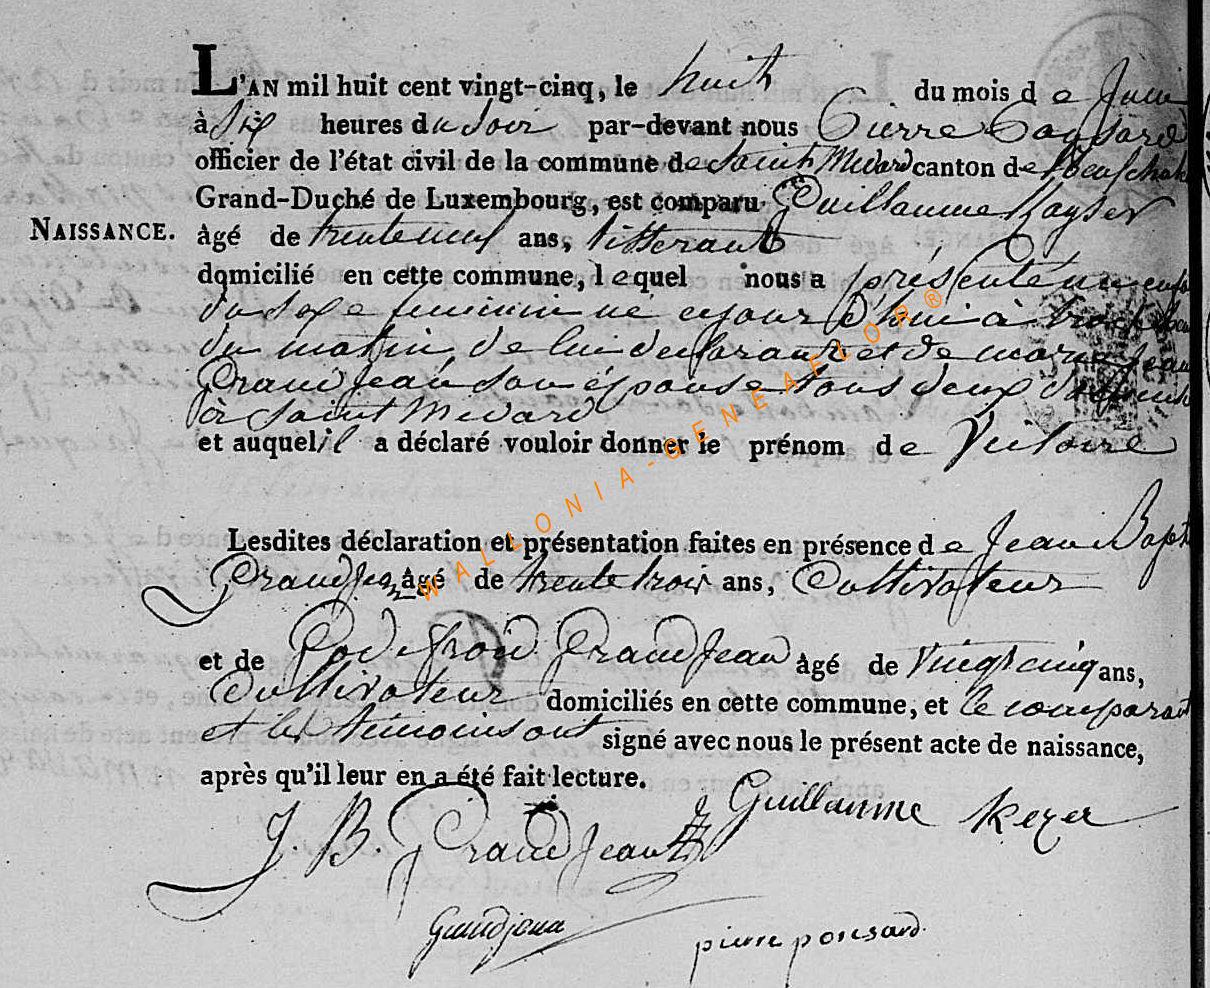 L'AN mil huit cent vingt-cinq, le huit du mois d e Juin
à Six heures du Soir par-devant nous Pierre Ponsard
officier de l'état civil de la commune de Saint Medard canton de Neufchat
Grand-Duché de Luxembourg, est comparu Guillaume Kayser
NAISSANCE. âgé de trente neuf ans,
domicilié en cette commune, lequel nous a présenté un enfa
du sexe feminin né cejour d'hui à trois
du matin, de lui declarant et de marie Jean
Grand Jean son épouse tous deux
à Saint Medard
et auquel il a déclaré vouloir donner le prénom de Victoire
Lesdites déclaration et présentation faites en présence de Jean Bapt
Grandjean âgé de trente trois ans, Cultivateur
et de Godefroid Grand Jean âgé de vingt cinq ans,
Cultivateur domiciliés en cette commune, et le comparant
et les témoins ont signé avec nous le présent acte de naissance,
après qu'il leur en a été fait lecture.
Guillaume Keyer
J. B. Grand Jean
Grandjean
pierre ponsard
WALLONIA-GENEAFLOR®